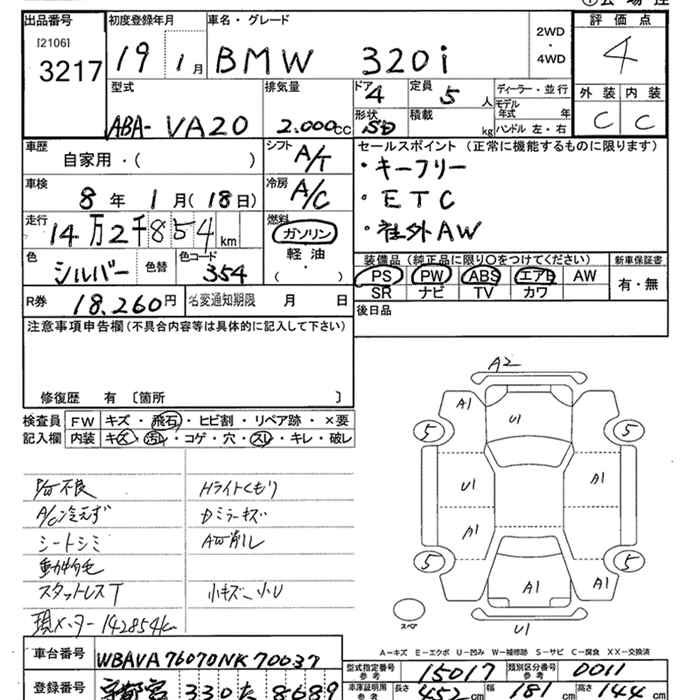 出品番号 初度登録年月 車名・グレード 2WD・4WD 評価点
[2106] 3217 19 1月 BMW 320i 4
型式 排気量 ドア 4 定員 5人 ディーラー・並行 外装 内装
ABA-VA20 2.000cc 形状 SD 積載 kg モデル年式 年 ハンドル 左・右 C C
車歴 自家用・( ) シフト A/T セールスポイント(正常に機能するものに限ります)
車検 8年 1月(18日) 冷房 A/C ・キーフリー
・ETC
走行 14万2千854km 燃料 ガソリン ・社外AW
軽油
( )
色 シルバー 色替 色コード 354 装備品(純正品に限り○をつけてください) 新車保証書
PS PW ABS エアB AW 有・無
SR ナビ TV カワ
R券 18,260円 名変通知期限 月 日 後日品
注意事項申告欄(不具合内容等は具体的に記入して下さい)
修復歴 有〔箇所 〕
検査員記入欄 FW キズ・飛石・ヒビ割・リペア跡・×要
内装 キズ・汚レ・コゲ・穴・スレ・キレ・破レ
不良 Hライトくもり
A/C冷えず Dミラーキズ
シートシミ AW削レ
動物毛
スタットレスT 小キズ、小U
現メーター142854km
A2
A1 U1
5 5
U1 A1
A1
5 5
A1 A1
U1
スペア
A-キズ E-エクボ U-凹み W-補修跡 S-サビ C-腐食 XX-交換済
車台番号 WBAVA76070NK70037 型式指定番号 参考 15017 類別区分番号 参考 0011
登録番号 宇都宮 330 た 8689 車庫証明用 参考 長さ 452cm 幅 181cm 高さ 144cm